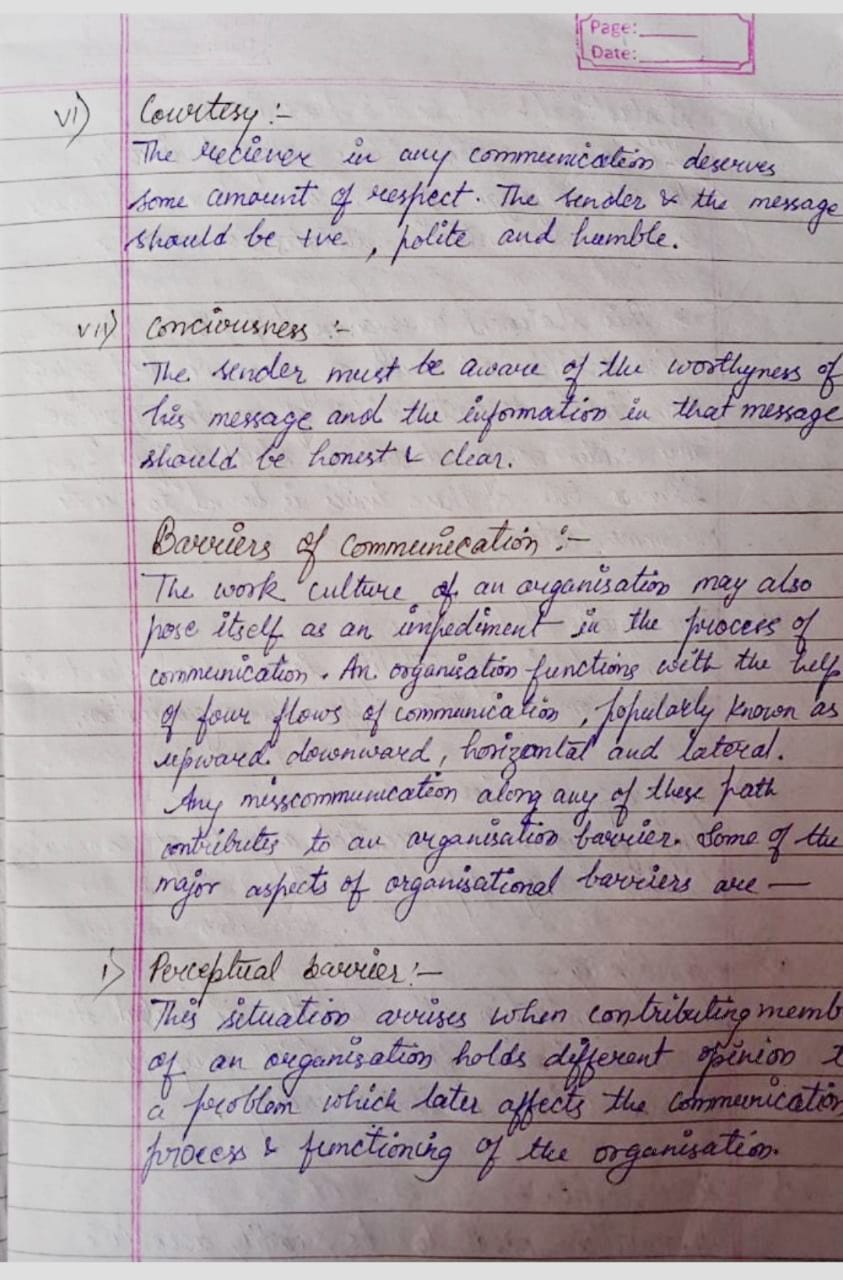 Page:
Date:
vi) Courtesy :-
The reciever in any communication deserves
some amount of respect. The sender & the message
should be +ve, polite and humble.
vii) Conciousness :-
The sender must be aware of the worthyness of
his message and the information in that message
should be honest & clear.
Barriers of Communication :-
The work culture of an organisation may also
pose itself as an impediment in the process of
communication. An organisation functions with the help
of four flows of communication, popularly known as
upward downward, horizontal and lateral.
Any misscommunication along any of these path
contributes to an organisation barrier. Some of the
major aspects of organisational barriers are —
i) Perceptual barrier :-
This situation arrises when contributing memb
of an organisation holds different opinion
a problem which later affects the communication
process & functioning of the organisation.